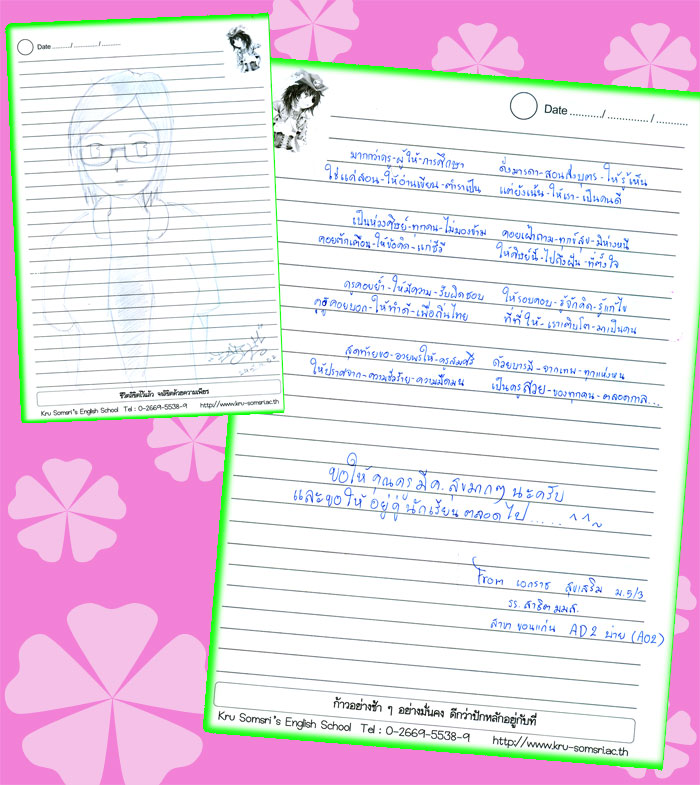 Date ........../ .............../ ..........
ชีวิตลิขิตไว้แล้ว จะลิขิตด้วยความเพียร
Kru Somsri's English School Tel : 0-2669-5538-9 http://www.kru-somsri.ac.th
Date ........../ .............../ ..........
มากกว่าครู-ผู้ให้-การศึกษา ดั่งมารดา-สอนสั่งบุตร-ให้รู้เห็น
ใช่แค่สอน-ให้อ่านเขียน-ตำราเป็น แต่ยังเน้น-ให้เรา-เป็นคนดี
เป็นห่วงศิษย์-ทุกคน-ไม่มองข้าม คอยเฝ้าถาม-ทุกข์สุข-มิห่างหนี
คอยตักเตือน-ให้ข้อคิด-แก่ชีวี ให้ศิษย์นี้-ไปถึงฝัน-ที่ตั้งใจ
ครูคอยย้ำ-ให้มีความ-รับผิดชอบ ให้รอบคอบ-รู้จักคิด-รู้แก้ไข
ครูคอยบอก-ให้ทำดี-เพื่อถิ่นไทย ที่ให้-เราเติบโต-มาเป็นคน
สุดท้ายขอ-อวยพรให้-ครูสมศรี ด้วยบารมี-จากเทพ-ทุกแห่งหน
ให้ปราศจาก-ความชั่วร้าย-ความมืดมน เป็นครูสวย-ของทุกคน-ตลอดกาล...
ขอให้คุณครูมีค.สุขมากๆนะครับ
และขอให้อยู่คู่นักเรียนตลอดไป..... ^^~
From เอกราช สุขเสริม ม.5/3
รร.สาธิต มมส.
สาขา ขอนแก่น AD2 บ่าย (A02)
ก้าวอย่างช้า ๆ อย่างมั่นคง ดีกว่าปักหลักอยู่กับที่
Kru Somsri's English School Tel : 0-2669-5538-9 http://www.kru-somsri.ac.th